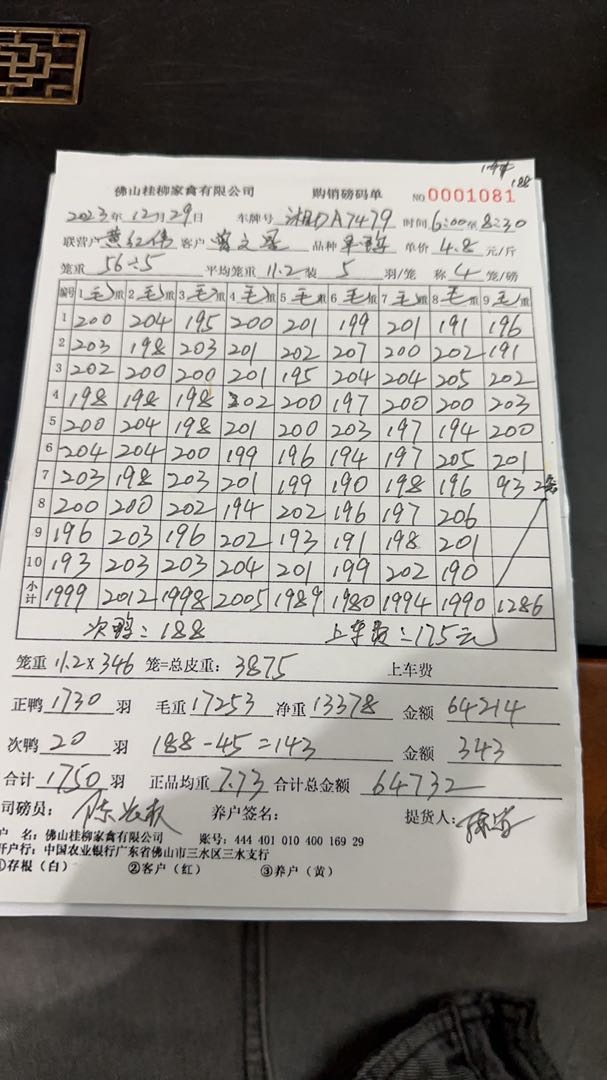 188
佛山桂柳家禽有限公司 购销磅码单 NO 0001081
2023年12月29日 车牌号 湘DA7479 时间 6:00至8:30
联营户 黄红伟 客户 曾文 品种 单价 4.8 元/斤
笼重 56÷5 平均笼重 11.2 装 5 羽/笼 称 4 笼/磅
编号 1毛重 2毛重 3毛重 4毛重 5毛重 6毛重 7毛重 8毛重 9毛重
1 200 204 195 200 201 199 201 191 196
2 203 198 203 201 202 207 200 202 191
3 202 200 200 201 195 204 204 205 202
4 198 198 198 202 200 197 200 200 203
5 200 204 198 201 200 203 197 194 200
6 204 204 200 199 196 194 197 205 201
7 203 198 203 201 199 190 198 196 93 2笼
8 200 200 202 194 202 196 197 206
9 196 203 196 202 193 191 198 201
10 193 203 203 204 201 199 202 190
小计 1999 2012 1998 2005 1989 1980 1994 1990 1286
次鸭:188 上车费:175元
笼重 11.2×346 笼=总皮重: 3875 上车费
正鸭 1730 羽 毛重 17253 净重 13378 金额 64214
次鸭 20 羽 188-45=143 金额 343
合计 1750 羽 正品均重 7.73 合计总金额 64732
司磅员: 养户签名: 提货人:
户 名: 佛山桂柳家禽有限公司 账号: 444 401 010 400 169 29
开户行: 中国农业银行广东省佛山市三水区三水支行
①存根(白) ②客户(红) ③养户(黄)